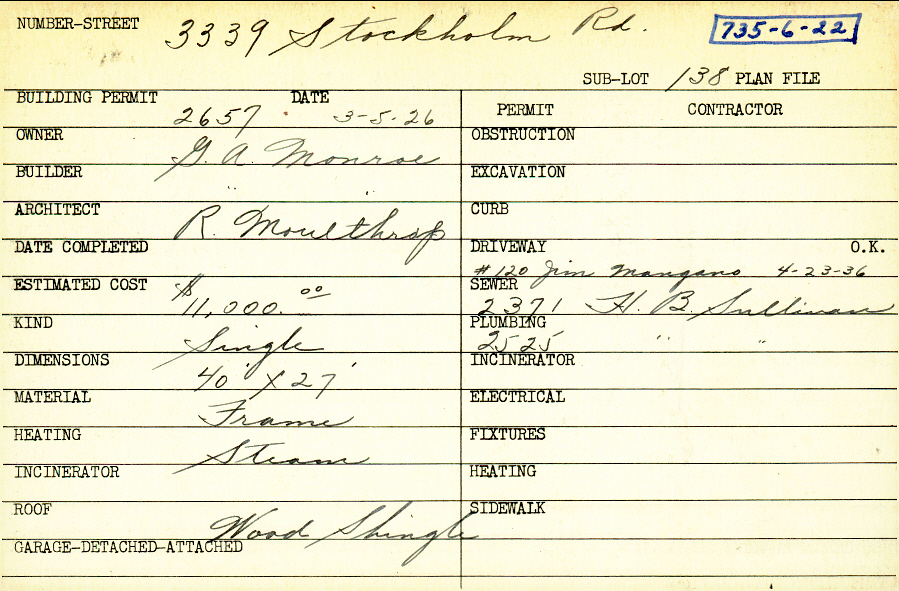 NUMBER-STREET 3339 Stockholm Rd. 735-6-22
SUB-LOT 138 PLAN FILE
BUILDING PERMIT 2657 DATE 3-5-26
OWNER G. A. Monroe
BUILDER " "
ARCHITECT R. Moulthrop
DATE COMPLETED
ESTIMATED COST $11,000.00
KIND Single
DIMENSIONS 40' X 27'
MATERIAL Frame
HEATING Steam
INCINERATOR
ROOF Wood Shingle
GARAGE-DETACHED-ATTACHED
PERMIT CONTRACTOR
OBSTRUCTION
EXCAVATION
CURB
DRIVEWAY O.K.
#120 Jim Mangano 4-23-36
SEWER
2371 H. B. Sullivan
PLUMBING
2525 " "
INCINERATOR
ELECTRICAL
FIXTURES
HEATING
SIDEWALK